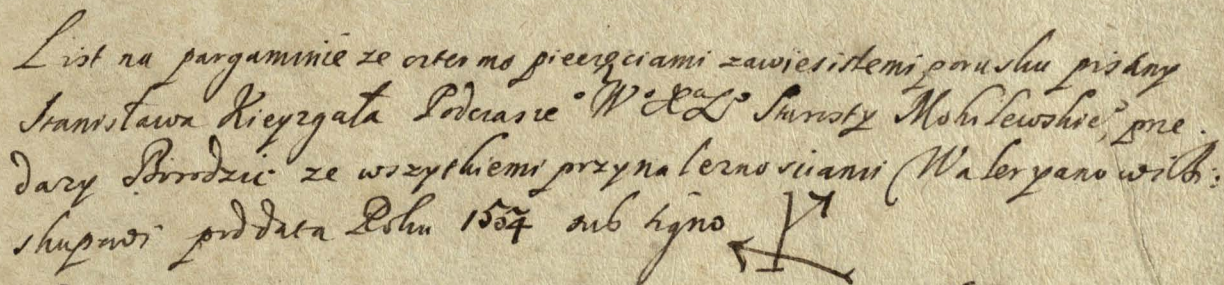 List na pargaminie ze czterma pieczęciami zawiesistemi porusku pisany
Stanisława Kieyzgała Podczasze° W° X^a L° Starosty Mohilewskie°, prze
dazy Borodzic ze wszytkiemi przynaleznosciami Waleryanowi Bi:
skupowi pod data Roku 1554 sub signo